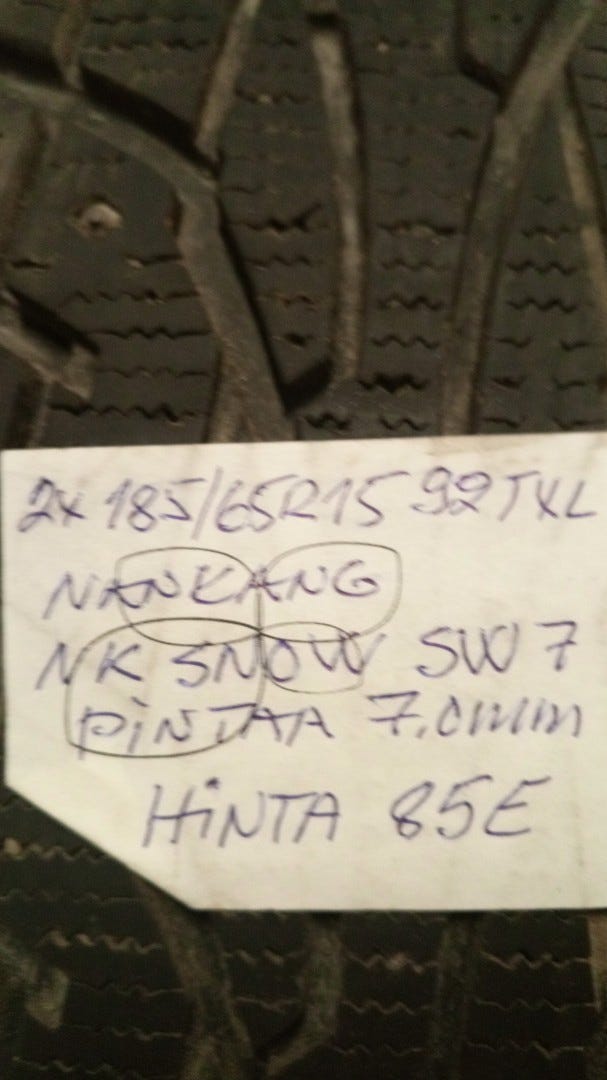 2x 185/65R15 92TXL
NANKANG
NK SNOW SW7
PiNTAA 7.0mm
HiNTA 85E